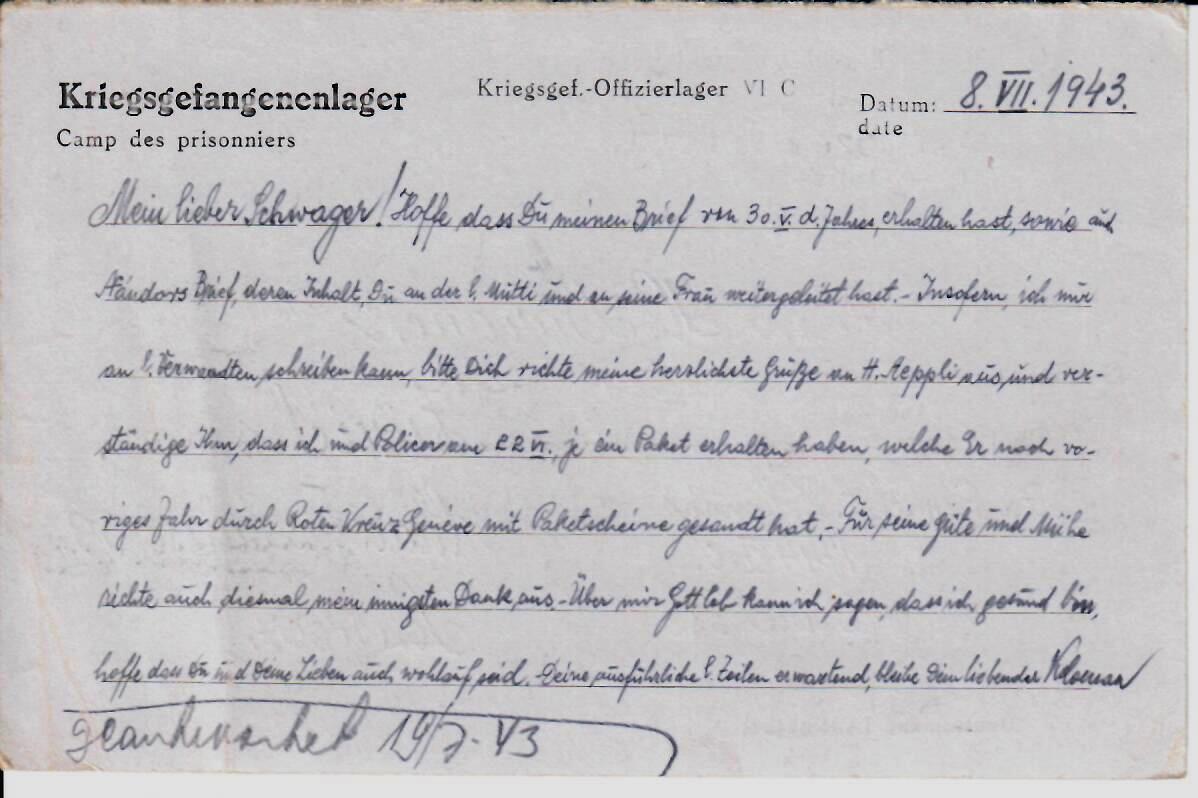 Kriegsgefangenenlager
Camp des prisonniers
Kriegsgef.-Offizierlager VI C
Datum: 8. VII. 1943.
date
Mein lieber Schwager! Hoffe dass Du meinen Brief von 30. V. d. Jahres, erhalten hast, sowie auch
Nándors Brief, deren Inhalt, Du an der l. Mutti und an seine Frau weitergeleitet hast. - Insofern, ich nur
an l. Verwandten schreiben kann, bitte Dich richte meine herzlichste Grüße an H. Aeppli aus, und ver-
ständige Ihm, dass ich und Policer am 22 VI. je ein Paket erhalten haben, welche Er noch vo-
riges Jahr durch Roten Kreuz Genéve mit Paketscheine gesandt hat. - Für seine Güte und Mühe
richte auch diesmal mein innigsten Dank aus. - Über mir Gottlob kann ich sagen, dass ich gesund bin,
hoffe dass Du und Deine Lieben auch wohlauf seid. Deine ausführliche l. Zeilen erwartend, bleibe Dein liebender
19/7-43